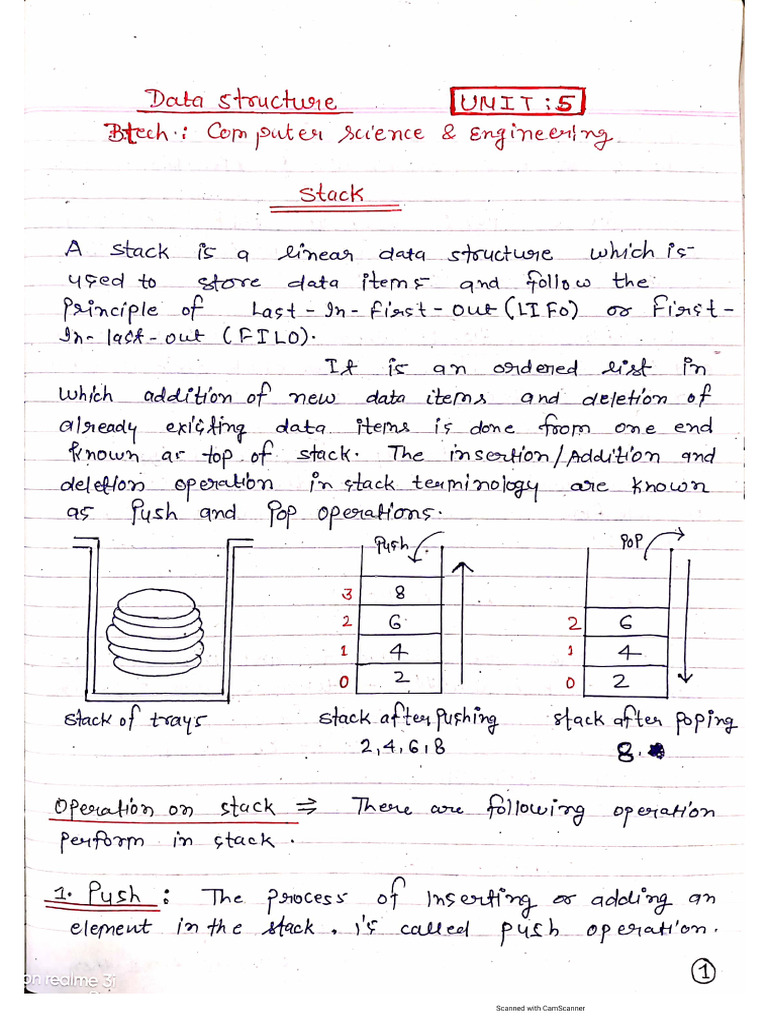 Data structure UNIT : 5
Btech. : Computer science & Engineering
Stack
A stack is a linear data structure which is
used to store data items and follow the
Principle of Last-In-First-Out (LIFO) or First-
In-last-out (FILO).
It is an ordered list in
which addition of new data items and deletion of
already existing data items is done from one end
known as top of stack. The insertion/Addition and
deletion operation in stack terminology are known
as Push and Pop operations.
Push POP
3 8
2 6 2 6
1 4 1 4
0 2 0 2
stack of trays stack after pushing stack after poping
2,4,6,8 8.
Operation on stack ⇒ There are following operation
perform in stack.
1. Push : The process of Inserting or adding an
element in the stack, is called push operation.
1
on realme 3i
Scanned with CamScanner